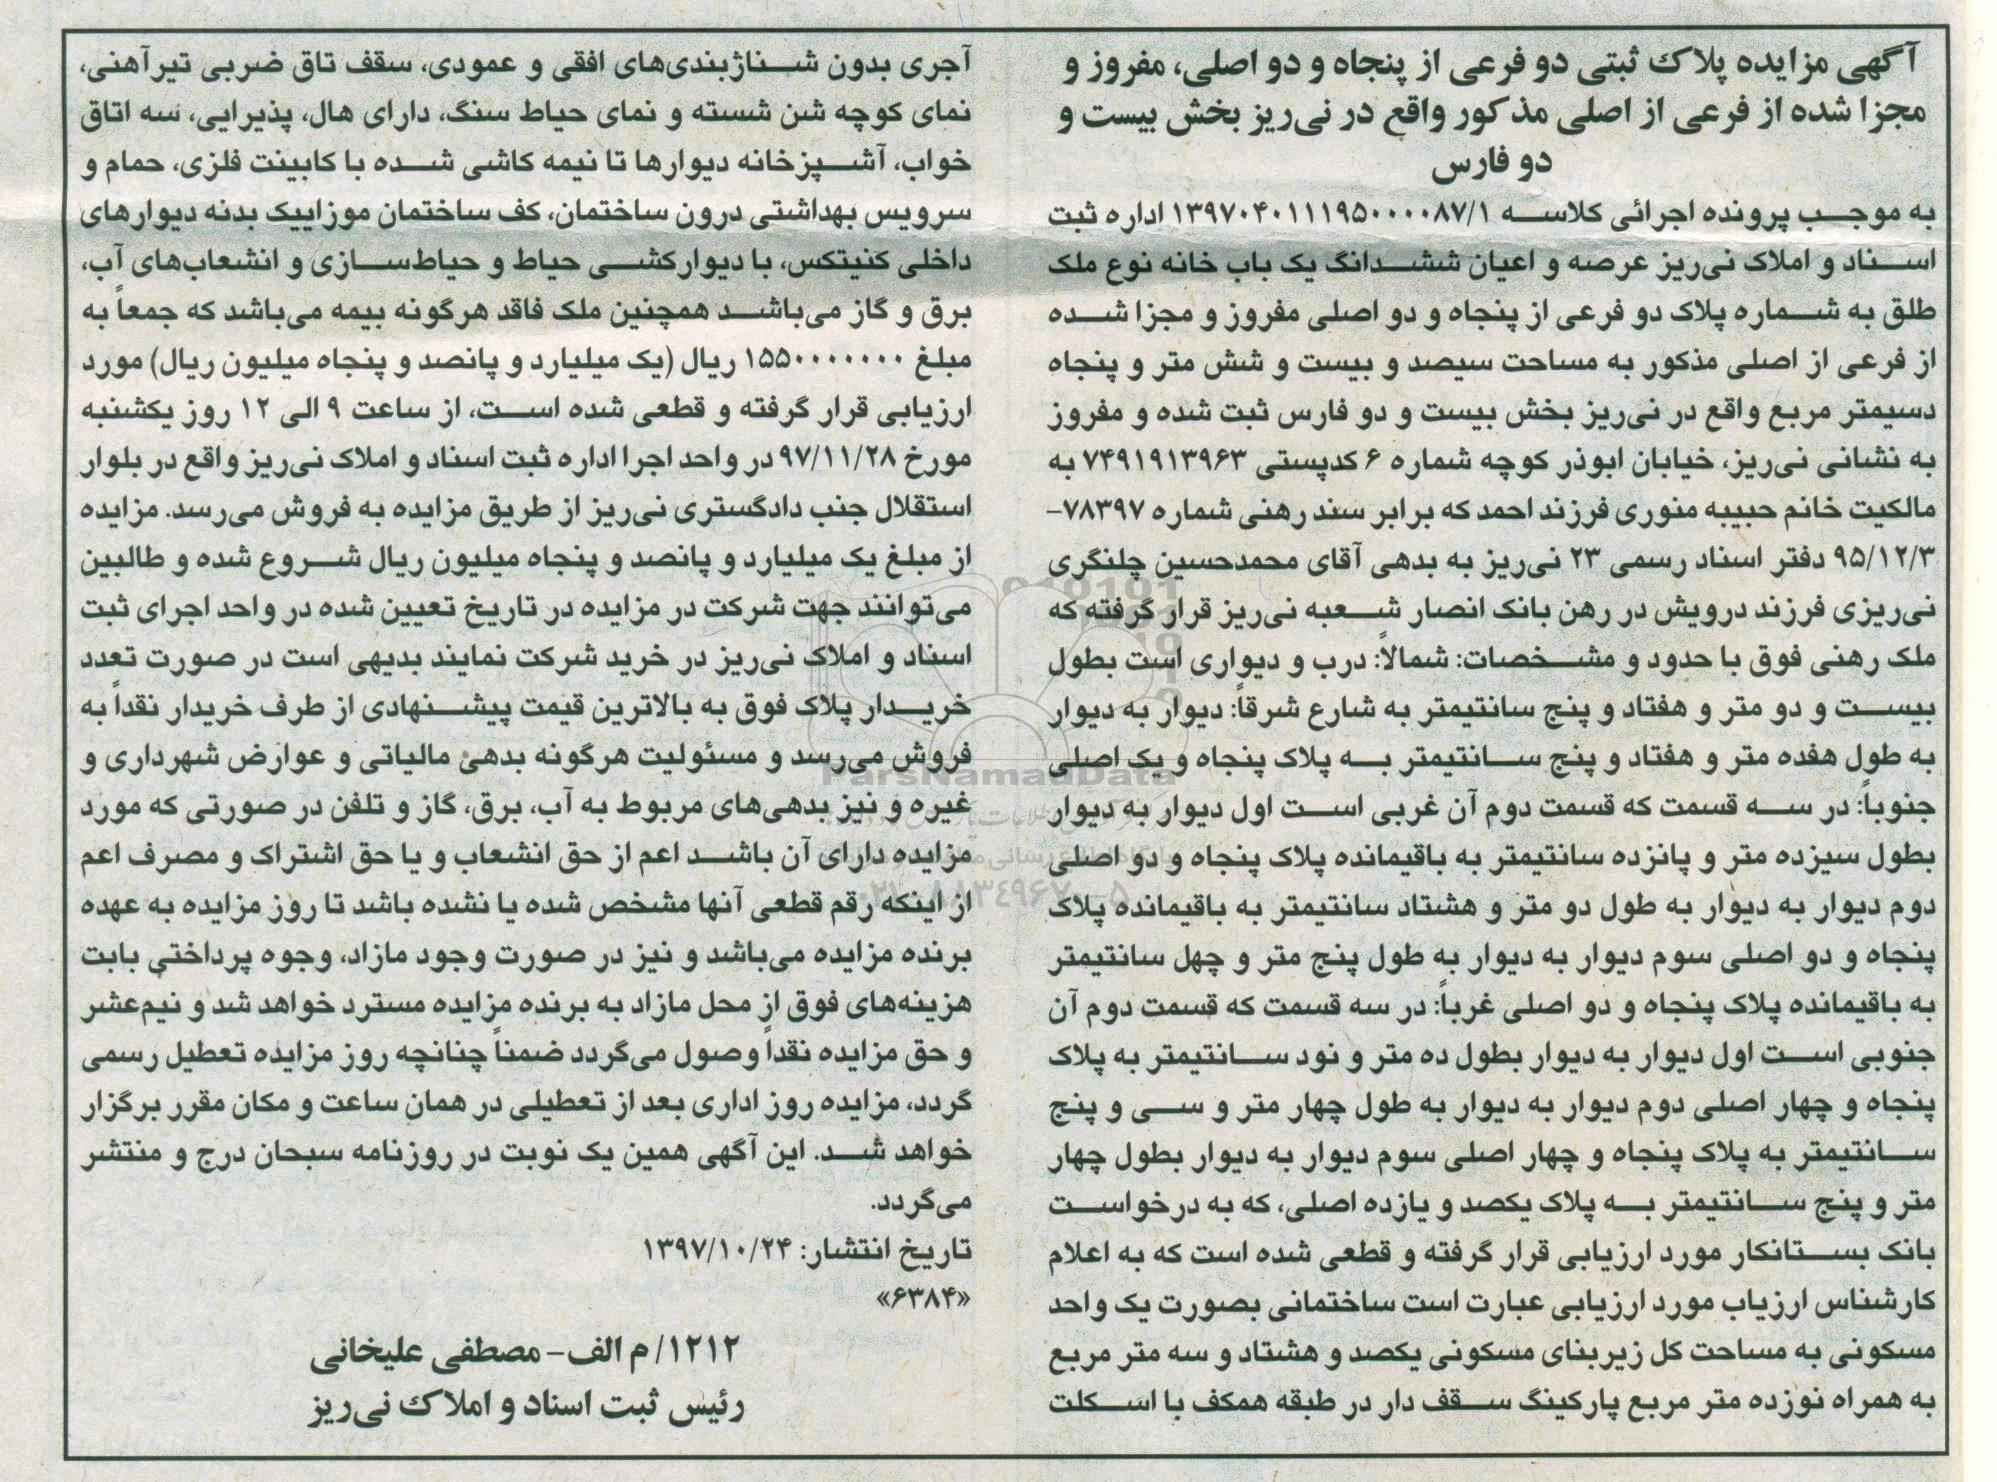 آگهی مزایده پلاک ثبتی دو فرعی از پنجاه و دو اصلی، مفروز و
مجزا شده از فرعی از اصلی مذکور واقع در نی‌ریز بخش بیست و
دو فارس
به موجب پرونده اجرائی کلاسه ۱۳۹۷۰۴۰۱۱۱۹۵۰۰۰۰۸۷/۱ اداره ثبت
اسناد و املاک نی‌ریز عرصه و اعیان ششدانگ یک باب خانه نوع ملک
طلق به شماره پلاک دو فرعی از پنجاه و دو اصلی مفروز و مجزا شده
از فرعی از اصلی مذکور به مساحت سیصد و بیست و شش متر و پنجاه
دسیمتر مربع واقع در نی‌ریز بخش بیست و دو فارس ثبت شده و مفروز
به نشانی نی‌ریز، خیابان ابوذر کوچه شماره ۶ کدپستی ۷۴۹۱۹۱۳۹۶۳ به
مالکیت خانم حبیبه منوری فرزند احمد که برابر سند رهنی شماره ۷۸۳۹۷-
۹۵/۱۲/۳ دفتر اسناد رسمی ۲۳ نی‌ریز به بدهی آقای محمدحسین چلنگری
نی‌ریزی فرزند درویش در رهن بانک انصار شعبه نی‌ریز قرار گرفته که
ملک رهنی فوق با حدود و مشخصات: شمالاً: درب و دیواری است بطول
بیست و دو متر و هفتاد و پنج سانتیمتر به شارع شرقاً: دیوار به دیوار
به طول هفده متر و هفتاد و پنج سانتیمتر به پلاک پنجاه و یک اصلی
جنوباً: در سه قسمت که قسمت دوم آن غربی است اول دیوار به دیوار
بطول سیزده متر و پانزده سانتیمتر به باقیمانده پلاک پنجاه و دو اصلی
دوم دیوار به دیوار به طول دو متر و هشتاد سانتیمتر به باقیمانده پلاک
پنجاه و دو اصلی سوم دیوار به دیوار به طول پنج متر و چهل سانتیمتر
به باقیمانده پلاک پنجاه و دو اصلی غرباً: در سه قسمت که قسمت دوم آن
جنوبی است اول دیوار به دیوار بطول ده متر و نود سانتیمتر به پلاک
پنجاه و چهار اصلی دوم دیوار به دیوار به طول چهار متر و سی و پنج
سانتیمتر به پلاک پنجاه و چهار اصلی سوم دیوار به دیوار بطول چهار
متر و پنج سانتیمتر به پلاک یکصد و یازده اصلی، که به درخواست
بانک بستانکار مورد ارزیابی قرار گرفته و قطعی شده است که به اعلام
کارشناس ارزیاب مورد ارزیابی عبارت است ساختمانی بصورت یک واحد
مسکونی به مساحت کل زیربنای مسکونی یکصد و هشتاد و سه متر مربع
به همراه نوزده متر مربع پارکینگ سقف دار در طبقه همکف با اسکلت
آجری بدون شناژبندی‌های افقی و عمودی، سقف تاق ضربی تیرآهنی،
نمای کوچه شن شسته و نمای حیاط سنگ، دارای هال، پذیرایی، سه اتاق
خواب، آشپزخانه دیوارها تا نیمه کاشی شده با کابینت فلزی، حمام و
سرویس بهداشتی درون ساختمان، کف ساختمان موزاییک بدنه دیوارهای
داخلی کنیتکس، با دیوارکشی حیاط و حیاط‌سازی و انشعاب‌های آب،
برق و گاز می‌باشد همچنین ملک فاقد هرگونه بیمه می‌باشد که جمعاً به
مبلغ ۱۵۵۰۰۰۰۰۰۰ ریال (یک میلیارد و پانصد و پنجاه میلیون ریال) مورد
ارزیابی قرار گرفته و قطعی شده است، از ساعت ۹ الی ۱۲ روز یکشنبه
مورخ ۹۷/۱۱/۲۸ در واحد اجرا اداره ثبت اسناد و املاک نی‌ریز واقع در بلوار
استقلال جنب دادگستری نی‌ریز از طریق مزایده به فروش می‌رسد. مزایده
از مبلغ یک میلیارد و پانصد و پنجاه میلیون ریال شروع شده و طالبین
می‌توانند جهت شرکت در مزایده در تاریخ تعیین شده در واحد اجرای ثبت
اسناد و املاک نی‌ریز در خرید شرکت نمایند بدیهی است در صورت تعدد
خریدار پلاک فوق به بالاترین قیمت پیشنهادی از طرف خریدار نقداً به
فروش می‌رسد و مسئولیت هرگونه بدهی مالیاتی و عوارض شهرداری و
غیره و نیز بدهی‌های مربوط به آب، برق، گاز و تلفن در صورتی که مورد
مزایده دارای آن باشد اعم از حق انشعاب و یا حق اشتراک و مصرف اعم
از اینکه رقم قطعی آنها مشخص شده یا نشده باشد تا روز مزایده به عهده
برنده مزایده می‌باشد و نیز در صورت وجود مازاد، وجوه پرداختی بابت
هزینه‌های فوق از محل مازاد به برنده مزایده مسترد خواهد شد و نیم‌عشر
و حق مزایده نقداً وصول می‌گردد ضمناً چنانچه روز مزایده تعطیل رسمی
گردد، مزایده روز اداری بعد از تعطیلی در همان ساعت و مکان مقرر برگزار
خواهد شد. این آگهی همین یک نوبت در روزنامه سبحان درج و منتشر
می‌گردد.
تاریخ انتشار: ۱۳۹۷/۱۰/۲۴
«۶۳۸۴»
۱۲۱۲/ م الف- مصطفی علیخانی
رئیس ثبت اسناد و املاک نی‌ریز
ParsNamadData